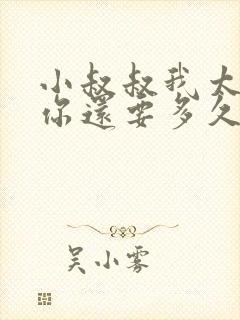 小叔叔我太
你還要多久
吴小雾